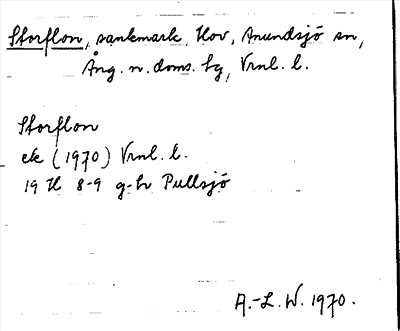 Storflon, sankmark, Hov, Anundsjö sn,
Ång. n. doms. sg, Vrnl. l.
Storflon
ek (1970) Vrnl. l.
19 H 8-9 g-h Pullsjö
A.-L. W. 1970.